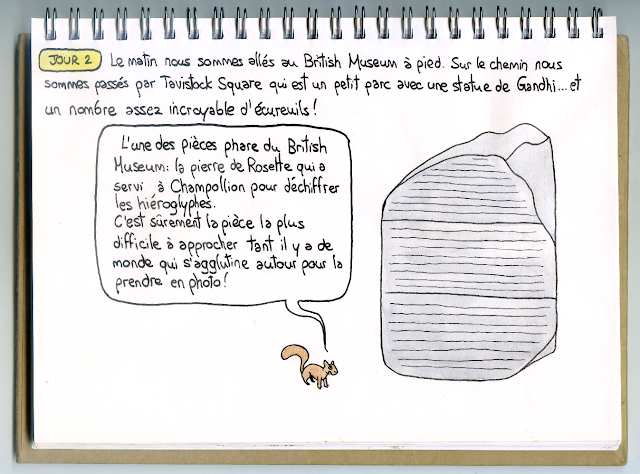 JOUR 2 Le matin nous sommes allés au British Museum à pied. Sur le chemin nous
sommes passés par Tavistock Square qui est un petit parc avec une statue de Gandhi... et
un nombre assez incroyable d'écureuils!
L'une des pièces phare du British
Museum: la pierre de Rosette qui a
servi à Champollion pour déchiffrer
les hiéroglyphes.
C'est sûrement la pièce la plus
difficile à approcher tant il y a de
monde qui s'agglutine autour pour la
prendre en photo!